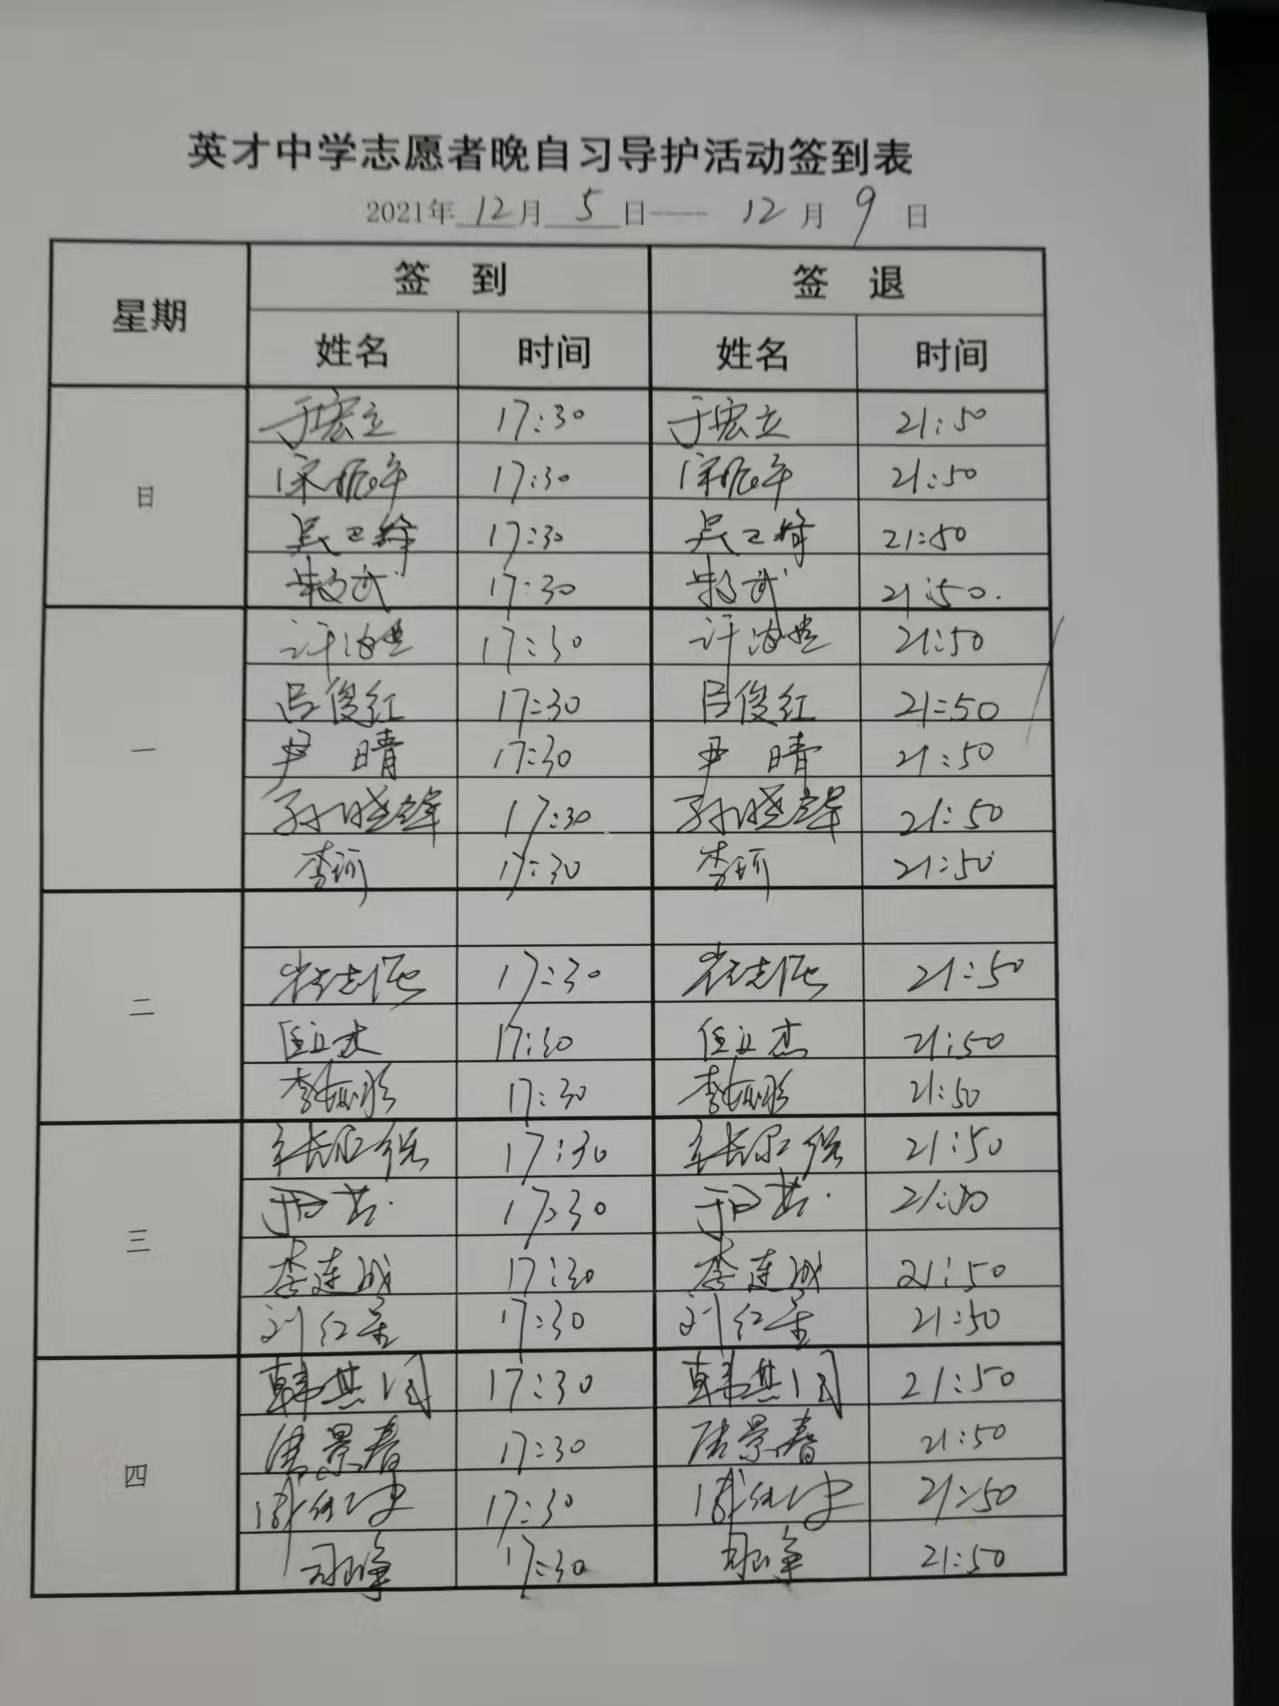 英才中学志愿者晚自习导护活动签到表
2021年 12月 5日—— 12月 9日
星期 签 到 签 退
姓名 时间 姓名 时间
日
于宏立 17:30 于宏立 21:50
宋振华 17:30 宋振华 21:50
吴卫峰 17:30 吴卫峰 21:50
17:30 21:50.
一
许海 17:30 许海 21:50
吕俊红 17:30 吕俊红 21:50
尹晴 17:30 尹晴 21:50
孙晓 17:30 孙晓 21:50
李珂 17:30 李珂 21:50
二
17:30 21:50
任立杰 17:30 任立杰 21:50
李 17:30 李 21:50
三
17:30 21:50
17:30 21:50
李连成 17:30 李连成 21:50
刘红 17:30 刘红 21:50
四
韩其同 17:30 韩其同 21:50
唐景春 17:30 唐景春 21:50
17:30 21:50
17:30 21:50